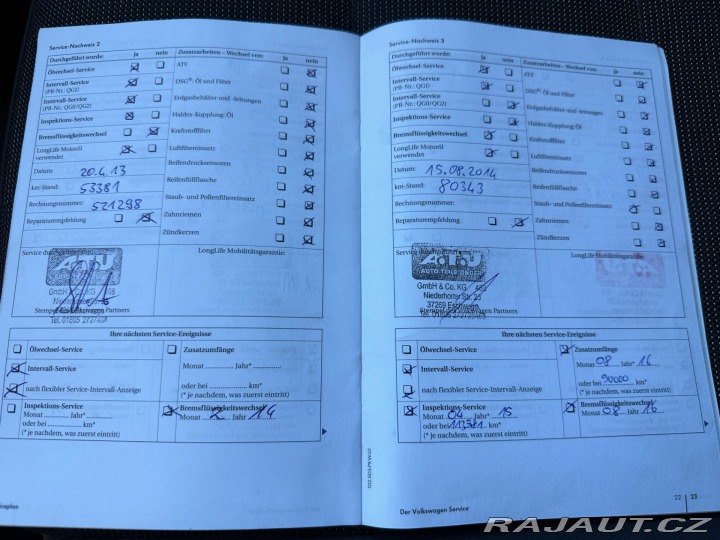 Service-Nachweis 2
Durchgeführt wurde: ja nein
Ölwechsel-Service
Intervall-Service
(PR-Nr.: QG1)
Intervall-Service
(PR-Nr.: QG0/QG2)
Inspektions-Service
Bremsflüssigkeitswechsel
LongLife Motoröl
verwendet
Datum: 20.4.13
km-Stand: 53381
Rechnungsnummer: 521298
Reparaturempfehlung
Zusatzarbeiten – Wechsel von: ja nein
ATF
DSG®: Öl und Filter
Erdgasbehälter und -leitungen
Haldex-Kupplung: Öl
Kraftstofffilter
Luftfiltereinsatz
Reifendrucksensoren
Reifenfüllflasche
Staub- und Pollenfiltereinsatz
Zahnriemen
Zündkerzen
LongLife Mobilitätsgarantie:
GmbH & Co. KG
Ihre nächsten Service-Ereignisse
Ölwechsel-Service
Intervall-Service
nach flexibler Service-Intervall-Anzeige
Inspektions-Service
Monat Jahr*
oder bei km*
(* je nachdem, was zuerst eintritt)
Zusatzumfänge
Monat Jahr*
oder bei km*
(* je nachdem, was zuerst eintritt)
Bremsflüssigkeitswechsel
Monat 2 Jahr 14
Service-Nachweis 3
Durchgeführt wurde: ja nein
Ölwechsel-Service
Intervall-Service
(PR-Nr.: QG1)
Intervall-Service
(PR-Nr.: QG0/QG2)
Inspektions-Service
Bremsflüssigkeitswechsel
LongLife Motoröl
verwendet
Datum: 15.08.2014
km-Stand: 80343
Rechnungsnummer:
Reparaturempfehlung
Zusatzarbeiten – Wechsel von: ja nein
ATF
DSG®: Öl und Filter
Erdgasbehälter und -leitungen
Haldex-Kupplung: Öl
Kraftstofffilter
Luftfiltereinsatz
Reifendrucksensoren
Reifenfüllflasche
Staub- und Pollenfiltereinsatz
Zahnriemen
Zündkerzen
LongLife Mobilitätsgarantie:
GmbH & Co. KG
Niederhoner Str. 23
37269 Eschwege
Ihre nächsten Service-Ereignisse
Ölwechsel-Service
Intervall-Service
nach flexibler Service-Intervall-Anzeige
Inspektions-Service
Monat 04 Jahr 15
oder bei 113381 km*
(* je nachdem, was zuerst eintritt)
Zusatzumfänge
Monat 08 Jahr 16
oder bei 90000 km*
(* je nachdem, was zuerst eintritt)
Bremsflüssigkeitswechsel
Monat 08 Jahr 16
22 23
Der Volkswagen Service
RAJAUT.CZ